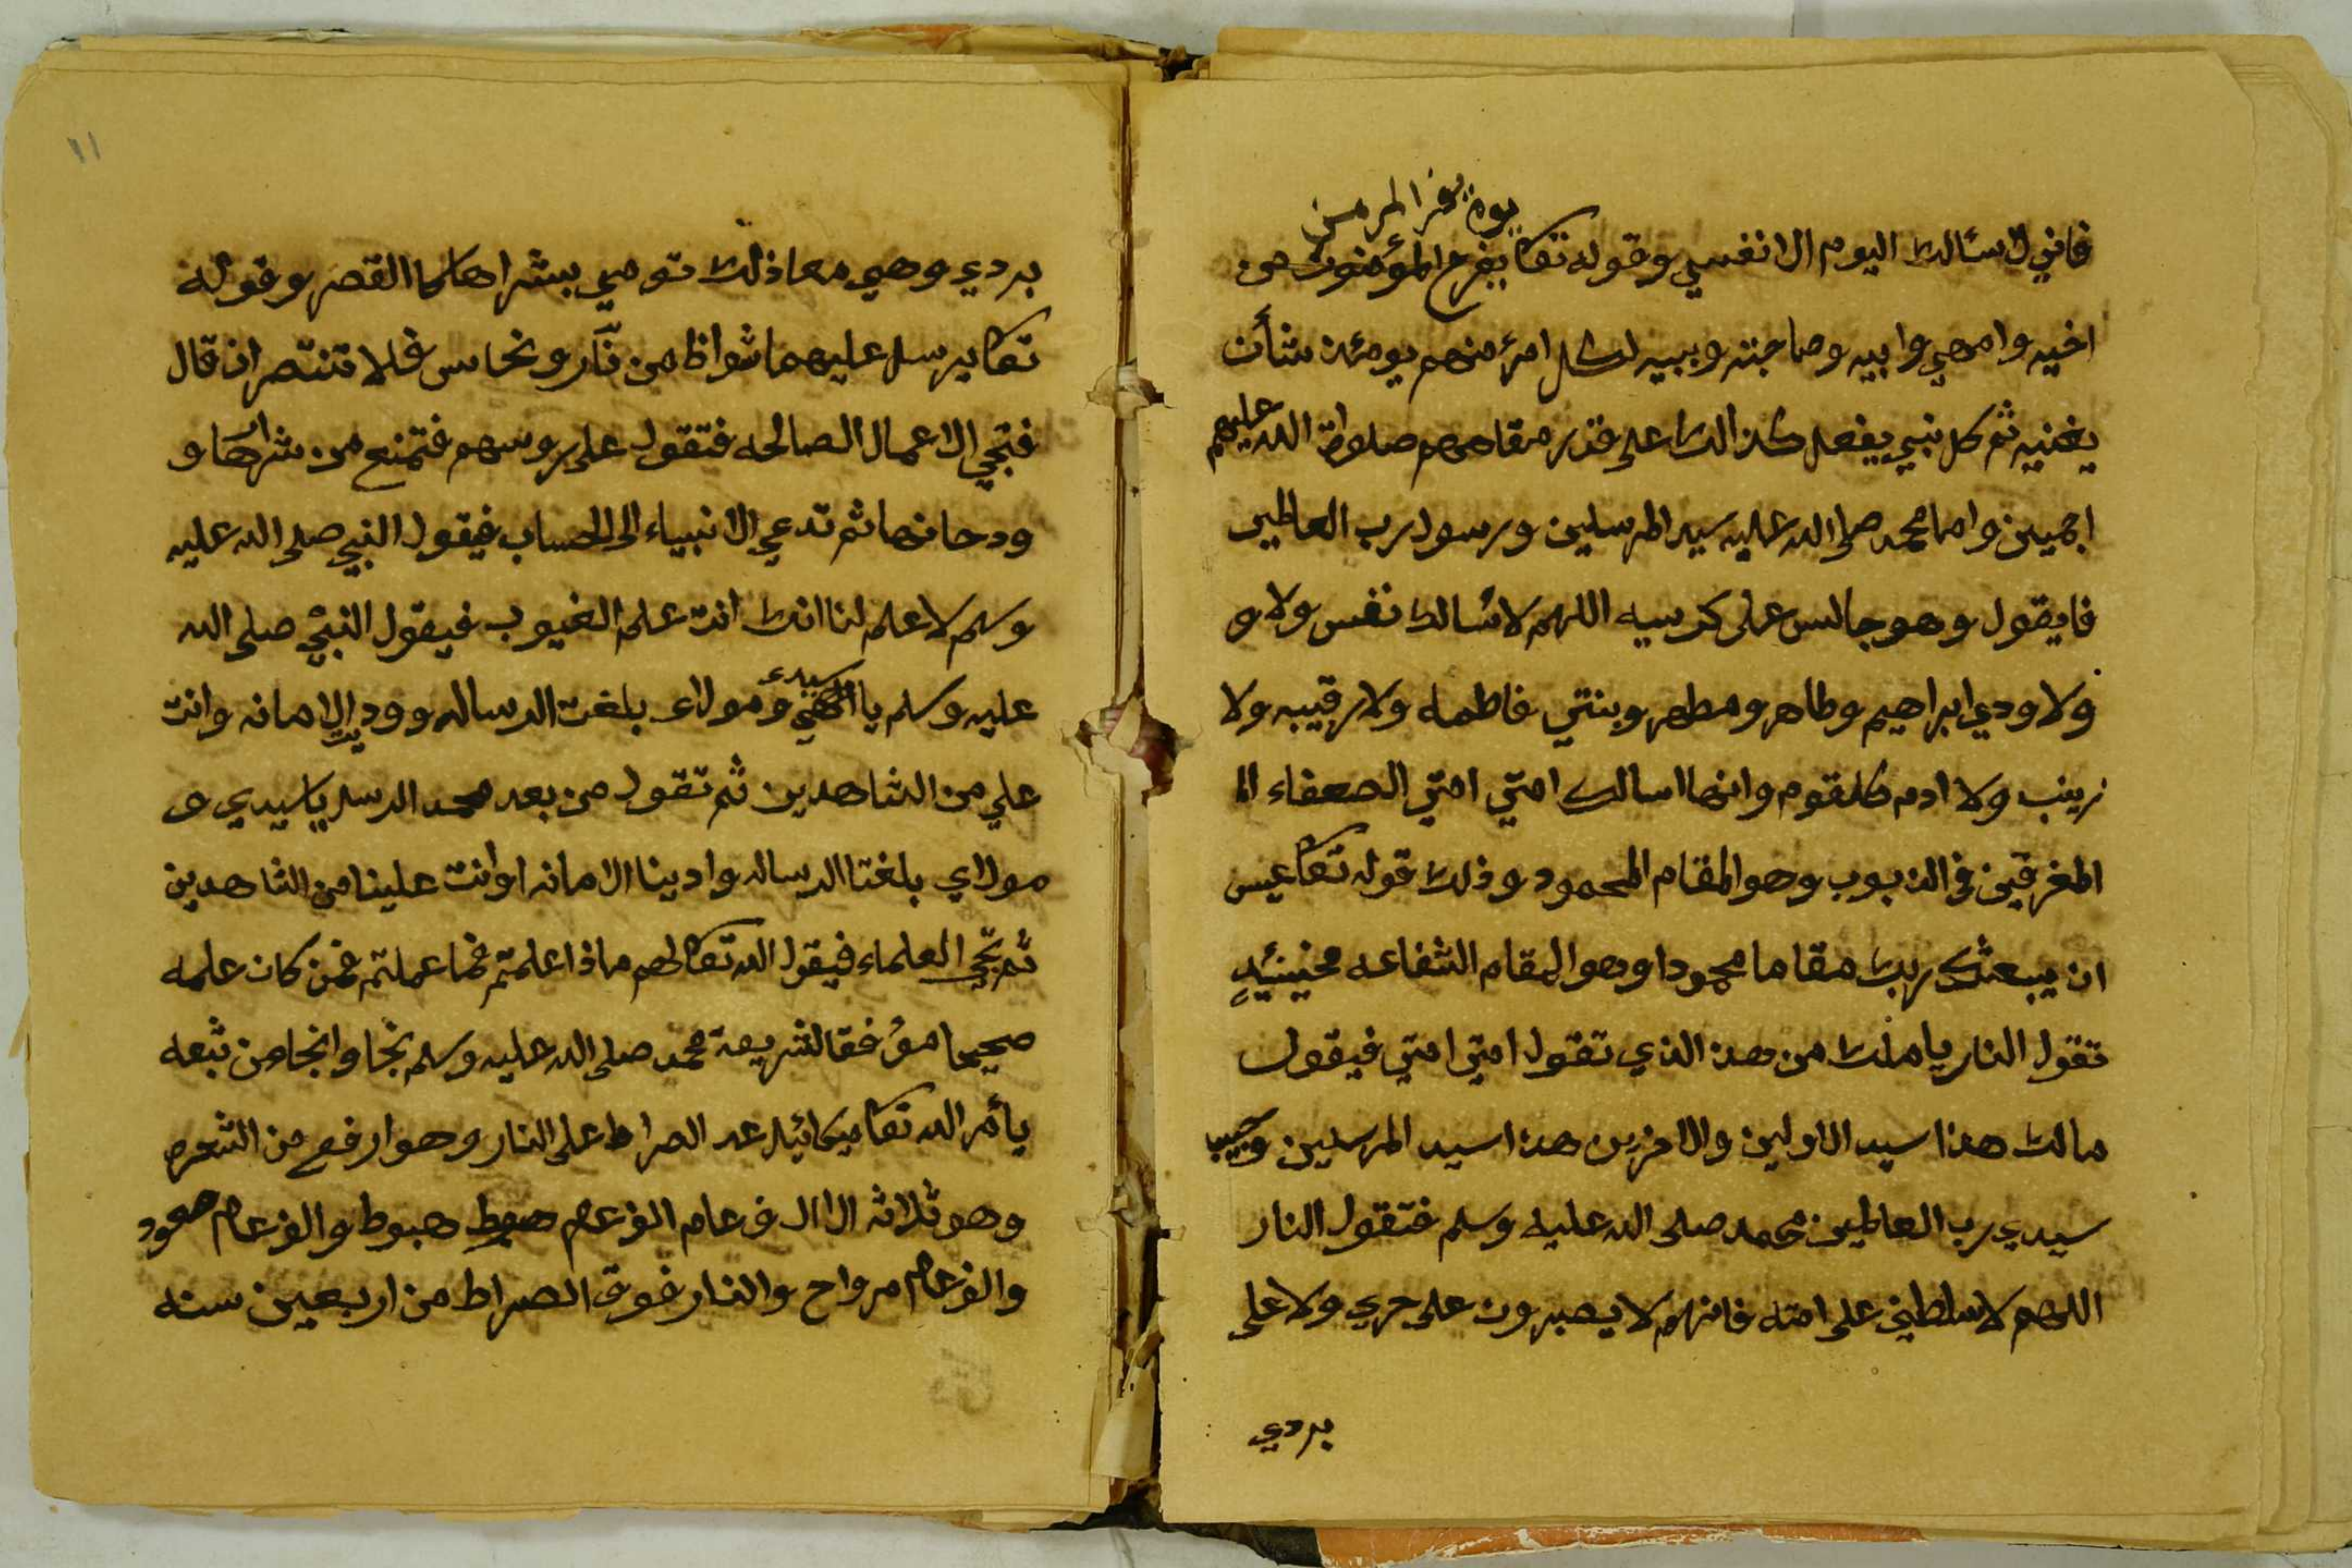 يوم يفر المرء من
فاني لا سئالك اليوم الا نفسي وقوله تعا يفرح المؤمنون من
اخيه وامهي وابيه وصاحبته وبنيه لكل امرئ منهم يومئذ شأن
يغنيه ثم كل نبي يفعل كذالك على قدر مقامهم صلواة الله عليهم
اجمين واما محمد صلى الله عليه سيد المرسلين ورسول رب العالمين
فايقول وهو جالس على كرسيه اللهم لا سئالك نفس ولا و
ولا ودي ابراهيم وطاهر ومطهر وبنتي فاطمه ولا رقيبه ولا
زينب ولا ادم كلثوم وانما اسالك امتي امتي الضعفاء الا
المغرقين في الذبوب وهو المقام المحمود وذلك قوله تعا عيس
ان يبعثك ربك مقاما محمودا وهو المقام الشفاعه فحينئيد
تقول النار يا مالك من هذ الذي تقول امتي امتي فيقول
مالك هذا سيد الاولين والاخرين هذا سيد المرسلين وحبيب
سيدي رب العالمين محمد صلى الله عليه وسلم فتقول النار
اللهم لا سلطني على امته فانهم لا يصبرون على حري ولا على
بردي
١١
بردي وهي معا ذلك تومي بشراها كما القصر وقوله
تعا يرسل عليهما شواظ من نار ونحاس فلا تنتصران قال
فتجي الاعمال الصالحه فتقول على روسهم فتمنع من شرارها و
ودخانها ثم تدعي الانبياء الى الحساب فيقول النبي صلى الله عليه
وسلم لا علم لنا انك انت علم الغيوب فيقول النبي صلى الله
عليه وسلم يا الهي وسيدي ومولاي بلغت الرساله ووديت الامانه وانت
علي من الشاهدين ثم تقول من بعد محمد الرسل يا سيدي و
مولاي بلغتا الرساله وادينا الامانه اوانت علينا من الشاهدين
ثم تجي العلماء فيقول الله تعا لهم ماذا علمتم فما عملتم فمن كان علمه
صحيحا مؤفقا لشريعة محمد صلى الله عليه وسلم نجا وانجا من تبعه
يأمر الله تعا ميكائيل عد الصراط على النار وهو ارفع من الشعره
وهو ثلاثه الاالف عام الف عام هبوط والف عام صعود
والف عام مرواح والنار فوق الصراط من اربعين سنه